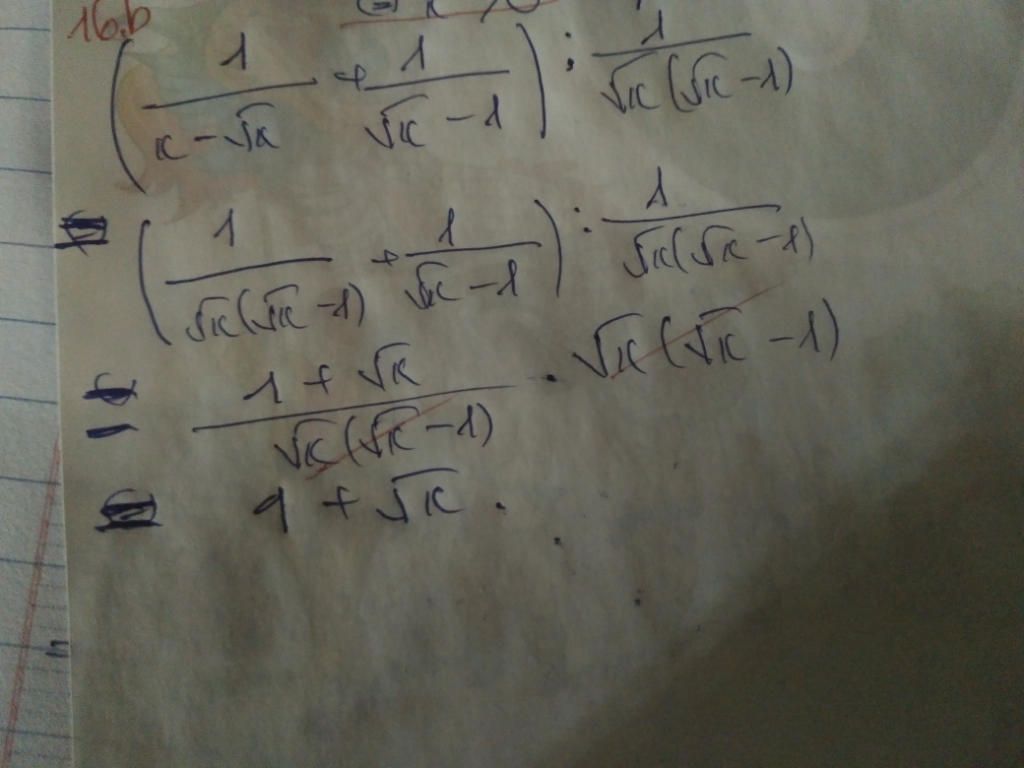 16.b
(1/(x - √x) + 1/(√x - 1)) : 1/(√x(√x - 1))
= (1/(√x(√x - 1)) + 1/(√x - 1)) : 1/(√x(√x - 1))
= (1 + √x)/(√x(√x - 1)) · √x(√x - 1)
= 1 + √x .